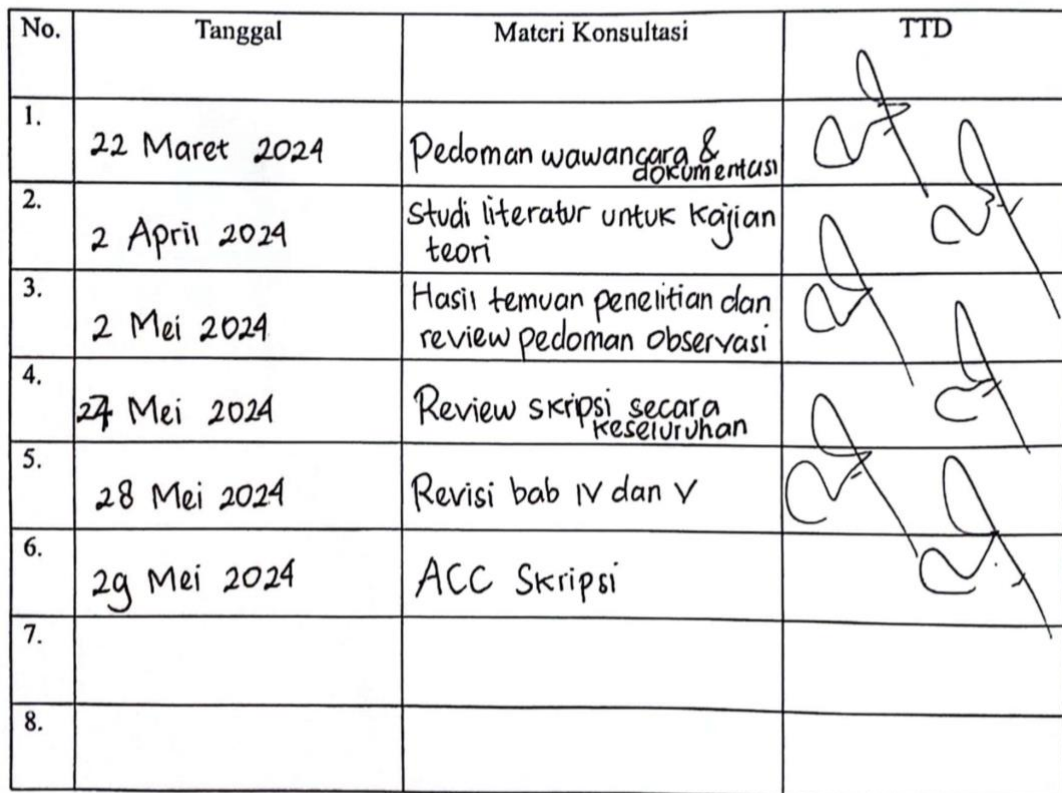 No. Tanggal Materi Konsultasi TTD
1. 22 Maret 2024 Pedoman wawancara &
dokumentasi
2. 2 April 2024 Studi literatur untuk kajian
teori
3. 2 Mei 2024 Hasil temuan penelitian dan
review pedoman observasi
4. 27 Mei 2024 Review skripsi secara
keseluruhan
5. 28 Mei 2024 Revisi bab IV dan V
6. 29 Mei 2024 ACC Skripsi
7.
8.